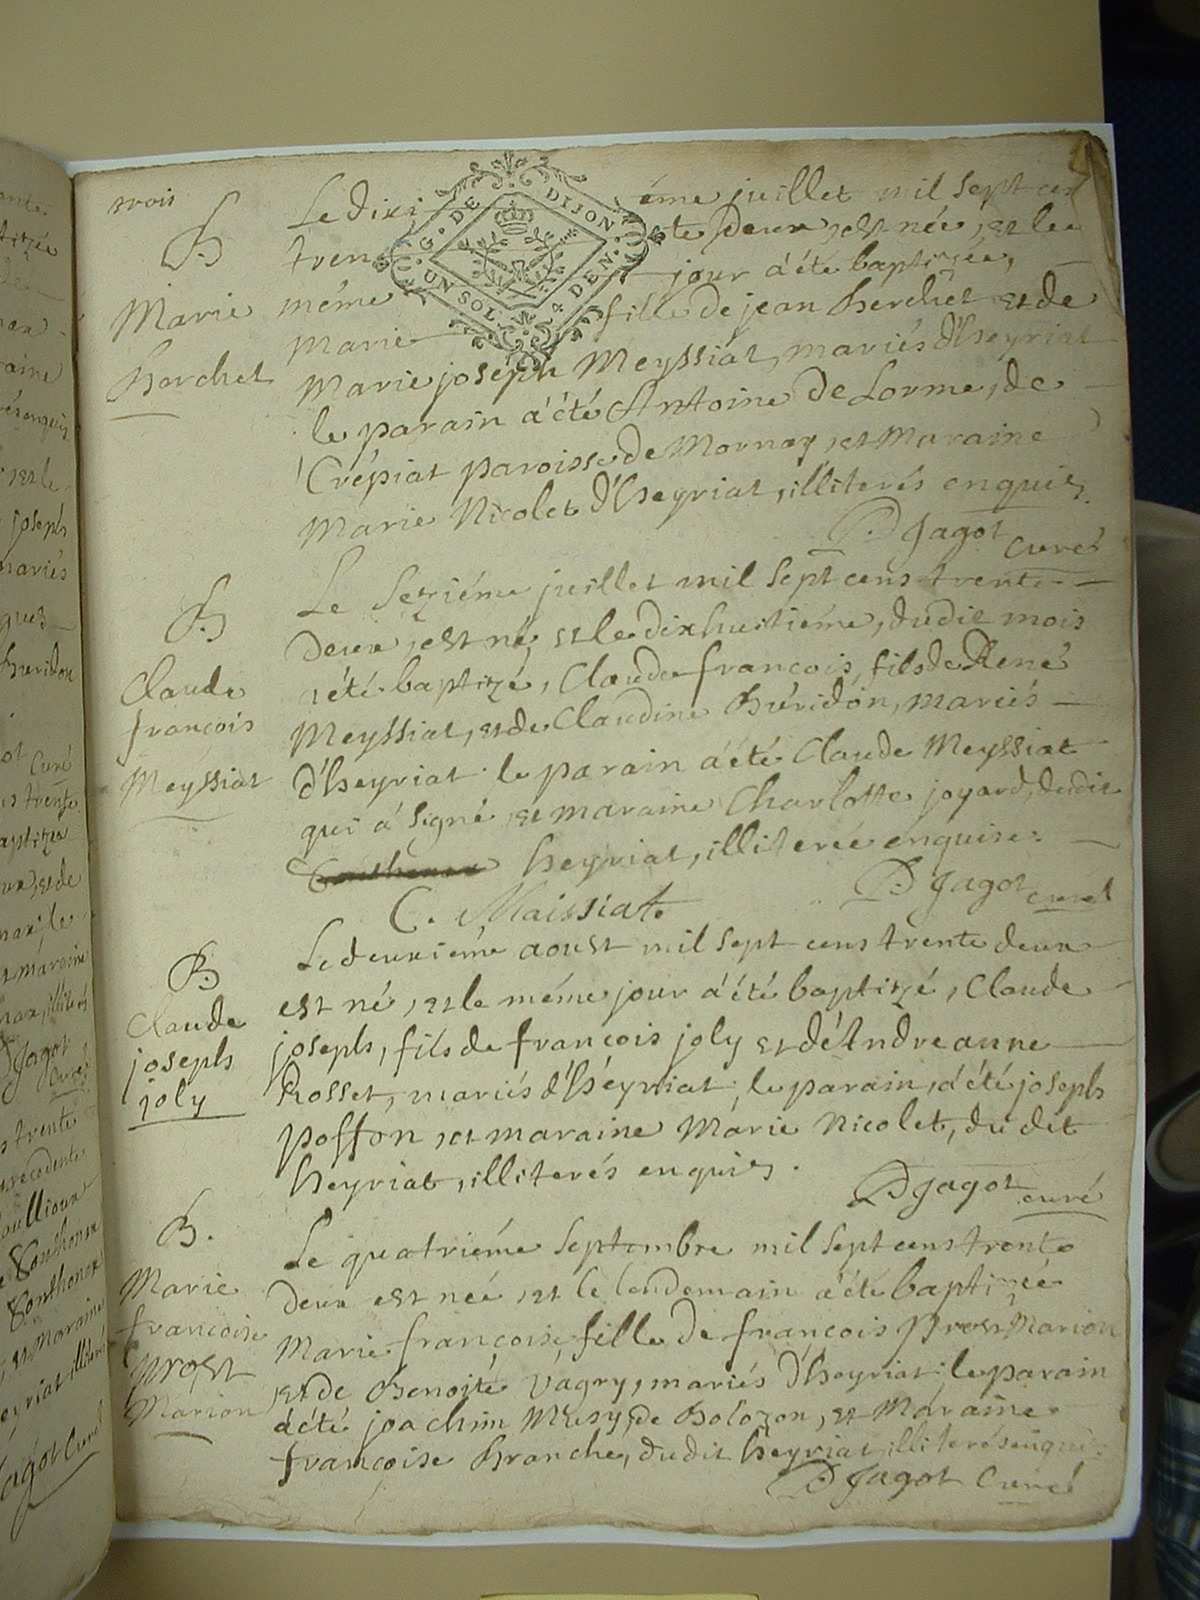 trois
B
Marie
Berchet
Le dixi ème juillet mil sept cens
tren te deux, est née, et le
même jour a été baptizée,
Marie fille de jean Berchet et de
Marie joseph Meyssiat, mariés d'heyriat
le parain a été Antoine De Lorme, de
Crépiat paroisse de Mornay, et Maraine
Marie Nicolet d'heyriat, illiterés enquis.
D Jagot curé
G. DE DIJON
UN SOL. 4 DEN.
B
Claude
françois
Meyssiat
Le Seziéme juillet mil Sept cens trente
deux, est né, et le dixhuitiéme, dudit mois
a été baptizé, Claude françois, fils de René
Meyssiat, et de Claudine Buéridon, mariés
d'heyriat. le parain a été Claude Meyssiat
qui a signé, et maraine Charlotte joyard, dudit
heyriat, illiterée enquise.
C. Maissiat D Jagot curé
B
Claude
joseph
joly
Le deuxiéme aoust mil Sept cens trente deux
est né, et le même jour a été baptizé, Claude
joseph, fils de françois joly et d'Andreanne
Rosset, mariés d'heyriat; le parain, a été joseph
Poffon, et maraine Marie Nicolet, du dit
heyriat, illiterés enquis.
D Jagot curé
B.
Marie
francoise
Prost
Marion
Le quatriéme Septembre mil Sept cens trente
deux est née, et le lendemain a été baptizée
Marie françoise, fille de francois Prost Marion
et de Benoite Vagry, mariés d'heyriat; le parain
a été joachim Musy, de Bolozon, et Maraine
françoise Branche, dudit heyriat, illiterés enquis.
D Jagot Curé